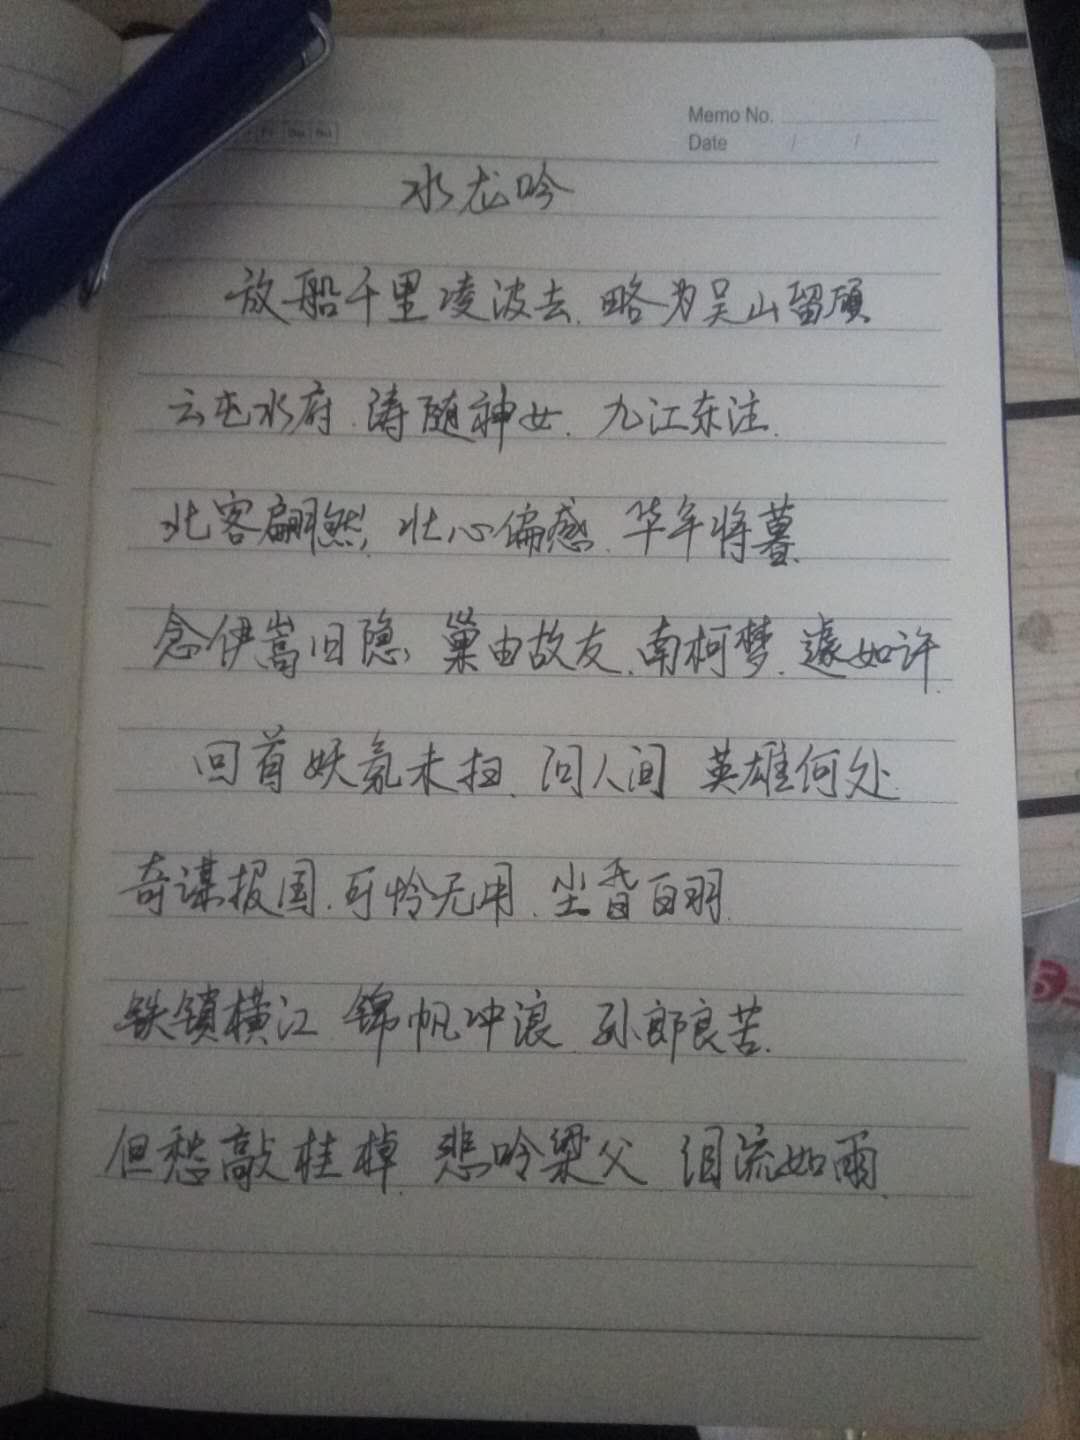 Memo No.
Date / /
水龙吟
放船千里凌波去.略为吴山留顾
云屯水府.涛随神女.九江东注.
北客翩然,壮心偏感.华年将暮.
念伊嵩旧隐,巢由故友.南柯梦.遽如许.
回首妖氛未扫.问人间 英雄何处.
奇谋报国.可怜无用.尘昏白羽.
铁锁横江 锦帆冲浪 孙郎良苦.
但愁敲桂棹.悲吟梁父 泪流如雨.